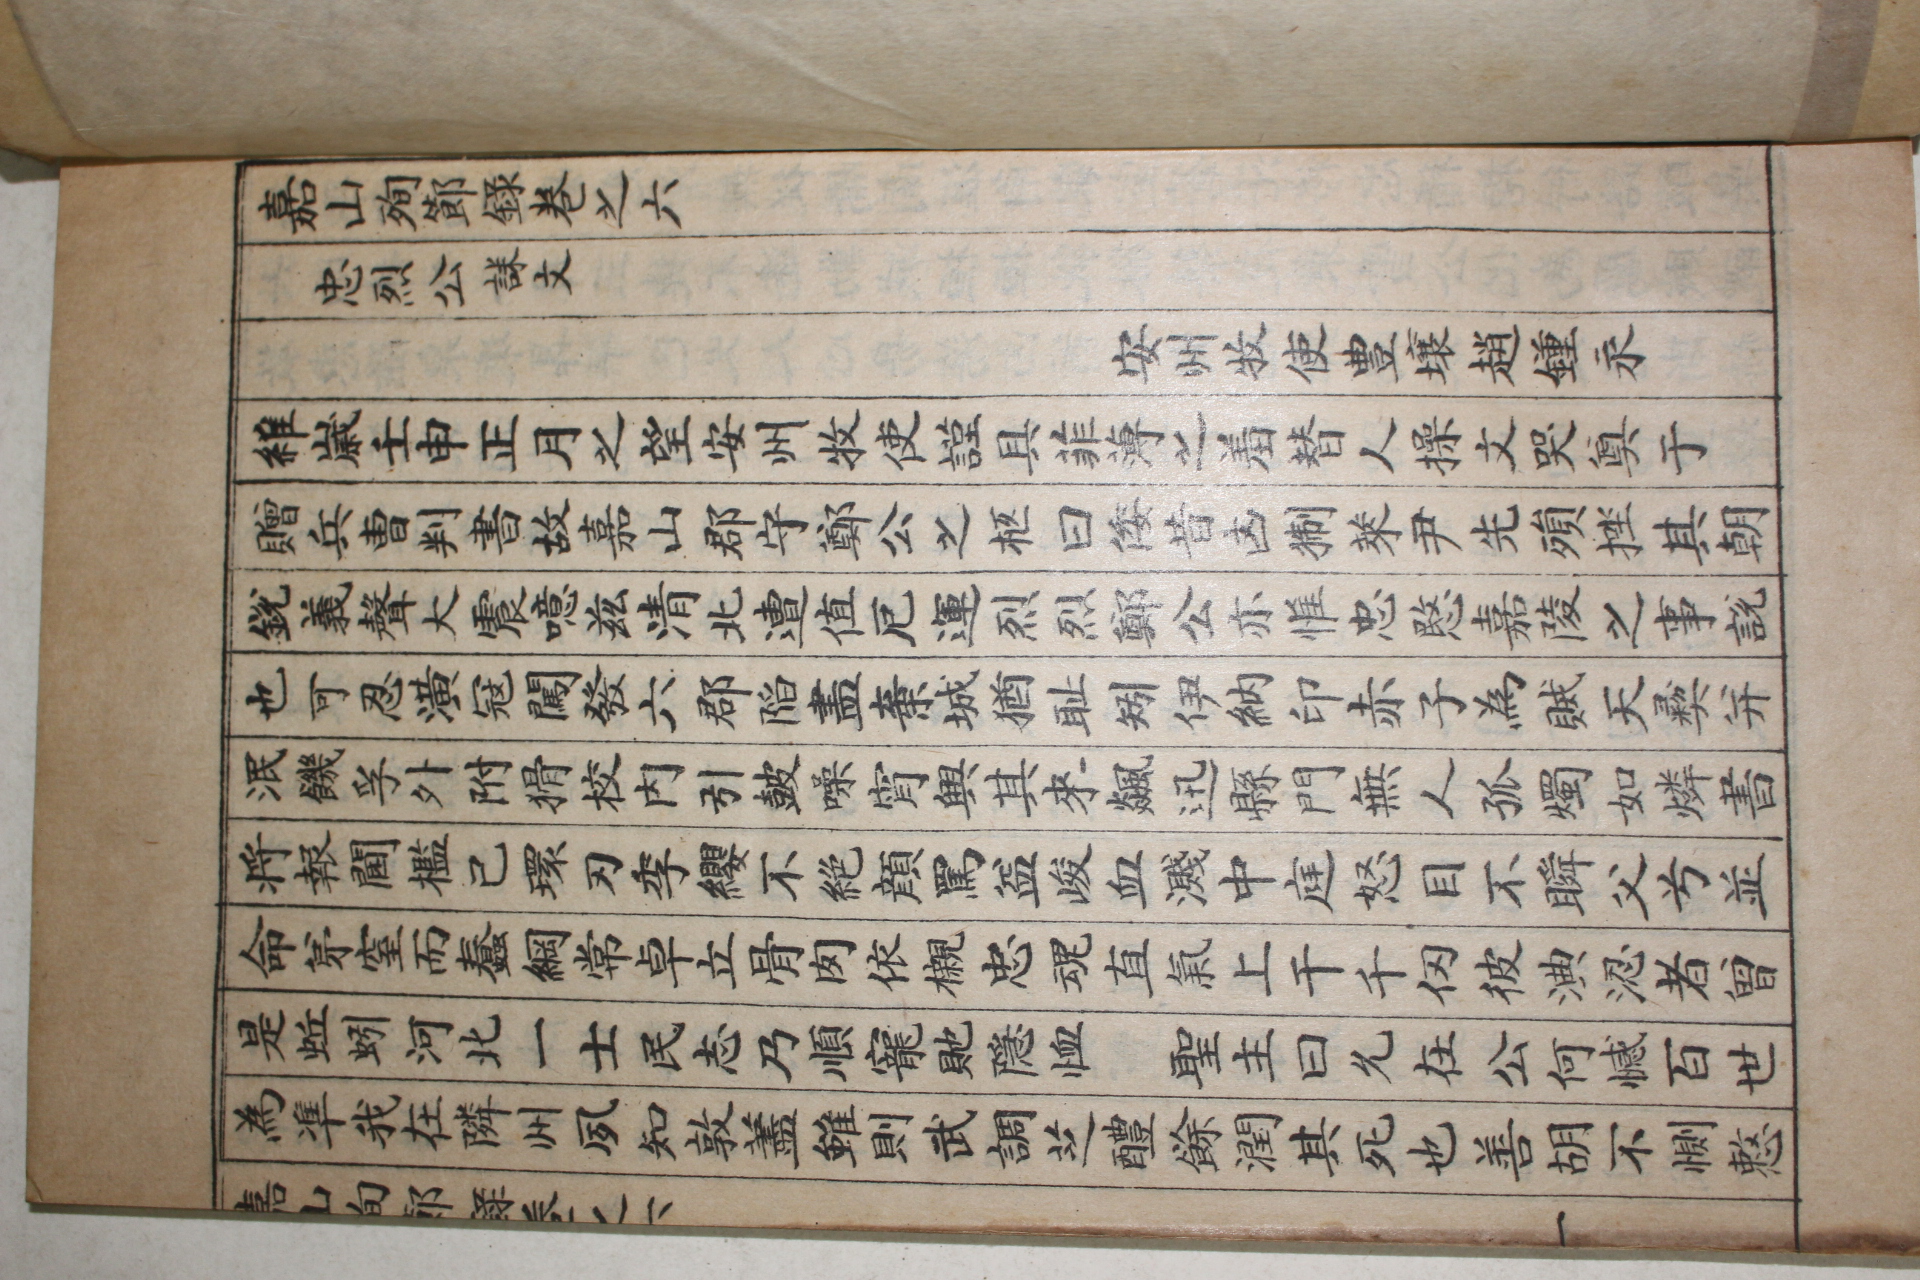 嘉山殉節錄卷之六
忠烈公誄文
安州牧使豊壤趙鍾永
維歲壬申正月之望安州牧使謹具菲薄之羞替人操文哭奠于
贈兵曹判書故嘉山郡守鄭公之柩曰倭昔凶猘萊尹先殞挫其朝
銳義聲大震噫茲清北遭值厄運烈烈鄭公亦惟忠愍嘉陵之事說
也可忍潢寇闖發六郡陷盡棄城猶耻矧伊納印赤子為賊天彛并
泯饑孚外附猾校內引鼓噪宵興其來飆迅縣門無人孤燭如燐書
将報閫檻已環刃季纓不絶顔罵益峻血濺中庭怒目不瞬父兮並
命苐窒而蠢綱常卓立骨肉依櫬忠魂直氣上干千仞彼淟涊者曾
是蚯蚓河北一士民志乃順寵貤隱恤 聖主曰允在公何憾百世
為準我在隣州夙知敦藎雖則武調芝醴餘潤其死也善胡不惻憖
嘉山殉節錄卷之六 一